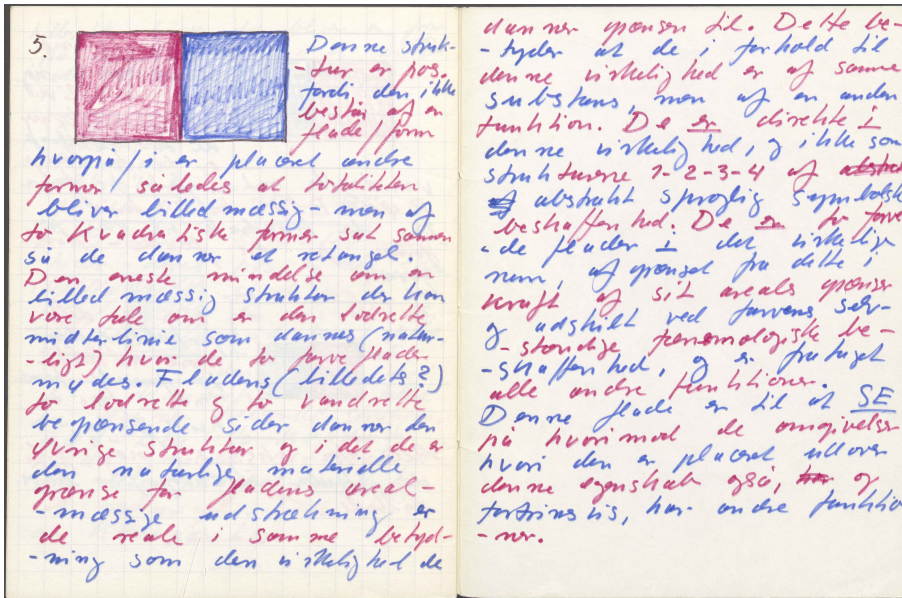 5.
Denne struk-
-tur er pos.
fordi den ikke
består af en
flade/form
hvorpå/i er placeret andre
former således at totaliteten
bliver billedmæssig - men af
to kvadratiske former sat sammen
så de danner et retangel.
Den eneste mindelse om en
billedmæssig struktur der kan
være tale om er den lodrette
midterlinie som dannes (natur-
-ligt) hvor de to farveflader
mødes. Fladens (billedets?)
to lodrette og to vandrette
begrænsende sider danner den
øvrige struktur og i det de er
den naturlige materielle
grænse for fladens areal-
-mæssige udstrækning er
de reale i samme betyd-
-ning som den virkelighed de
danner grænsen til. Dette be-
-tyder at de i forhold til
denne virkelighed er af samme
substans, men af en anden
funktion. De er direkte i
denne virkelighed, og ikke som
strukturerne 1-2-3-4 af
abstrakt sproglig symbolsk
beskaffenhed. De er to farve-
-de flader i det virkelige
rum, afgrænset fra dette i
kraft af sit areals grænser
og udskilt ved farvens selv-
-stændige fænomologiske be-
-skaffenhed, og er frataget
alle andre funktioner.
Denne flade er til at SE
på hvorimod de omgivelser
hvori den er placeret udover
denne egenskab også, og
fortrinsvis, har andre funktio-
-ner.